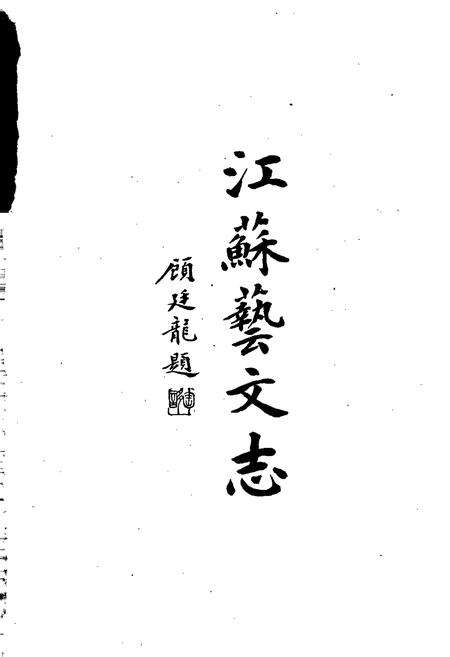 江蘇藝文志
顧廷龍題